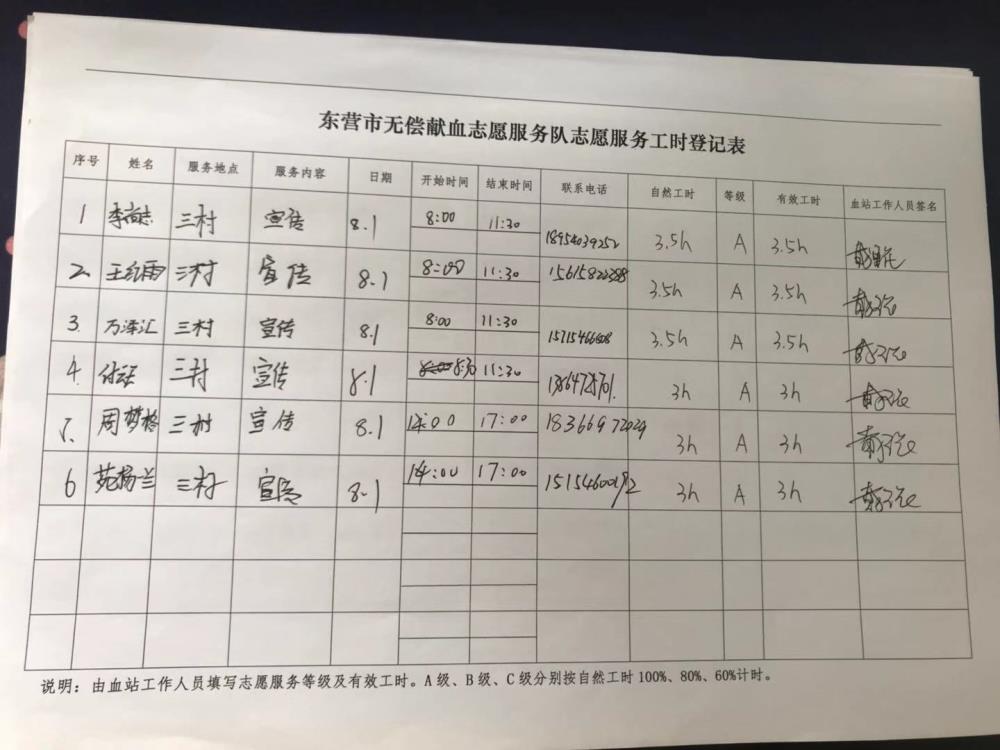 东营市无偿献血志愿服务队志愿服务工时登记表
序号 姓名 服务地点 服务内容 日期 开始时间 结束时间 联系电话 自然工时 等级 有效工时 血站工作人员签名
1 李尚志 三村 宣传 8.1 8:00 11:30 18954039252 3.5h A 3.5h
2 王红雨 三村 宣传 8.1 8:00 11:30 3.5h A 3.5h
3. 万泽汇 三村 宣传 8.1 8:00 11:30 3.5h A 3.5h
4. 三村 宣传 8.1 8:30 11:30 3h A 3h
5. 周梦格 三村 宣传 8.1 14:00 17:00 18366972029 3h A 3h
6 苑杨兰 三村 宣传 8.1 14:00 17:00 3h A 3h
说明：由血站工作人员填写志愿服务等级及有效工时。A级、B级、C级分别按自然工时100%、80%、60%计时。